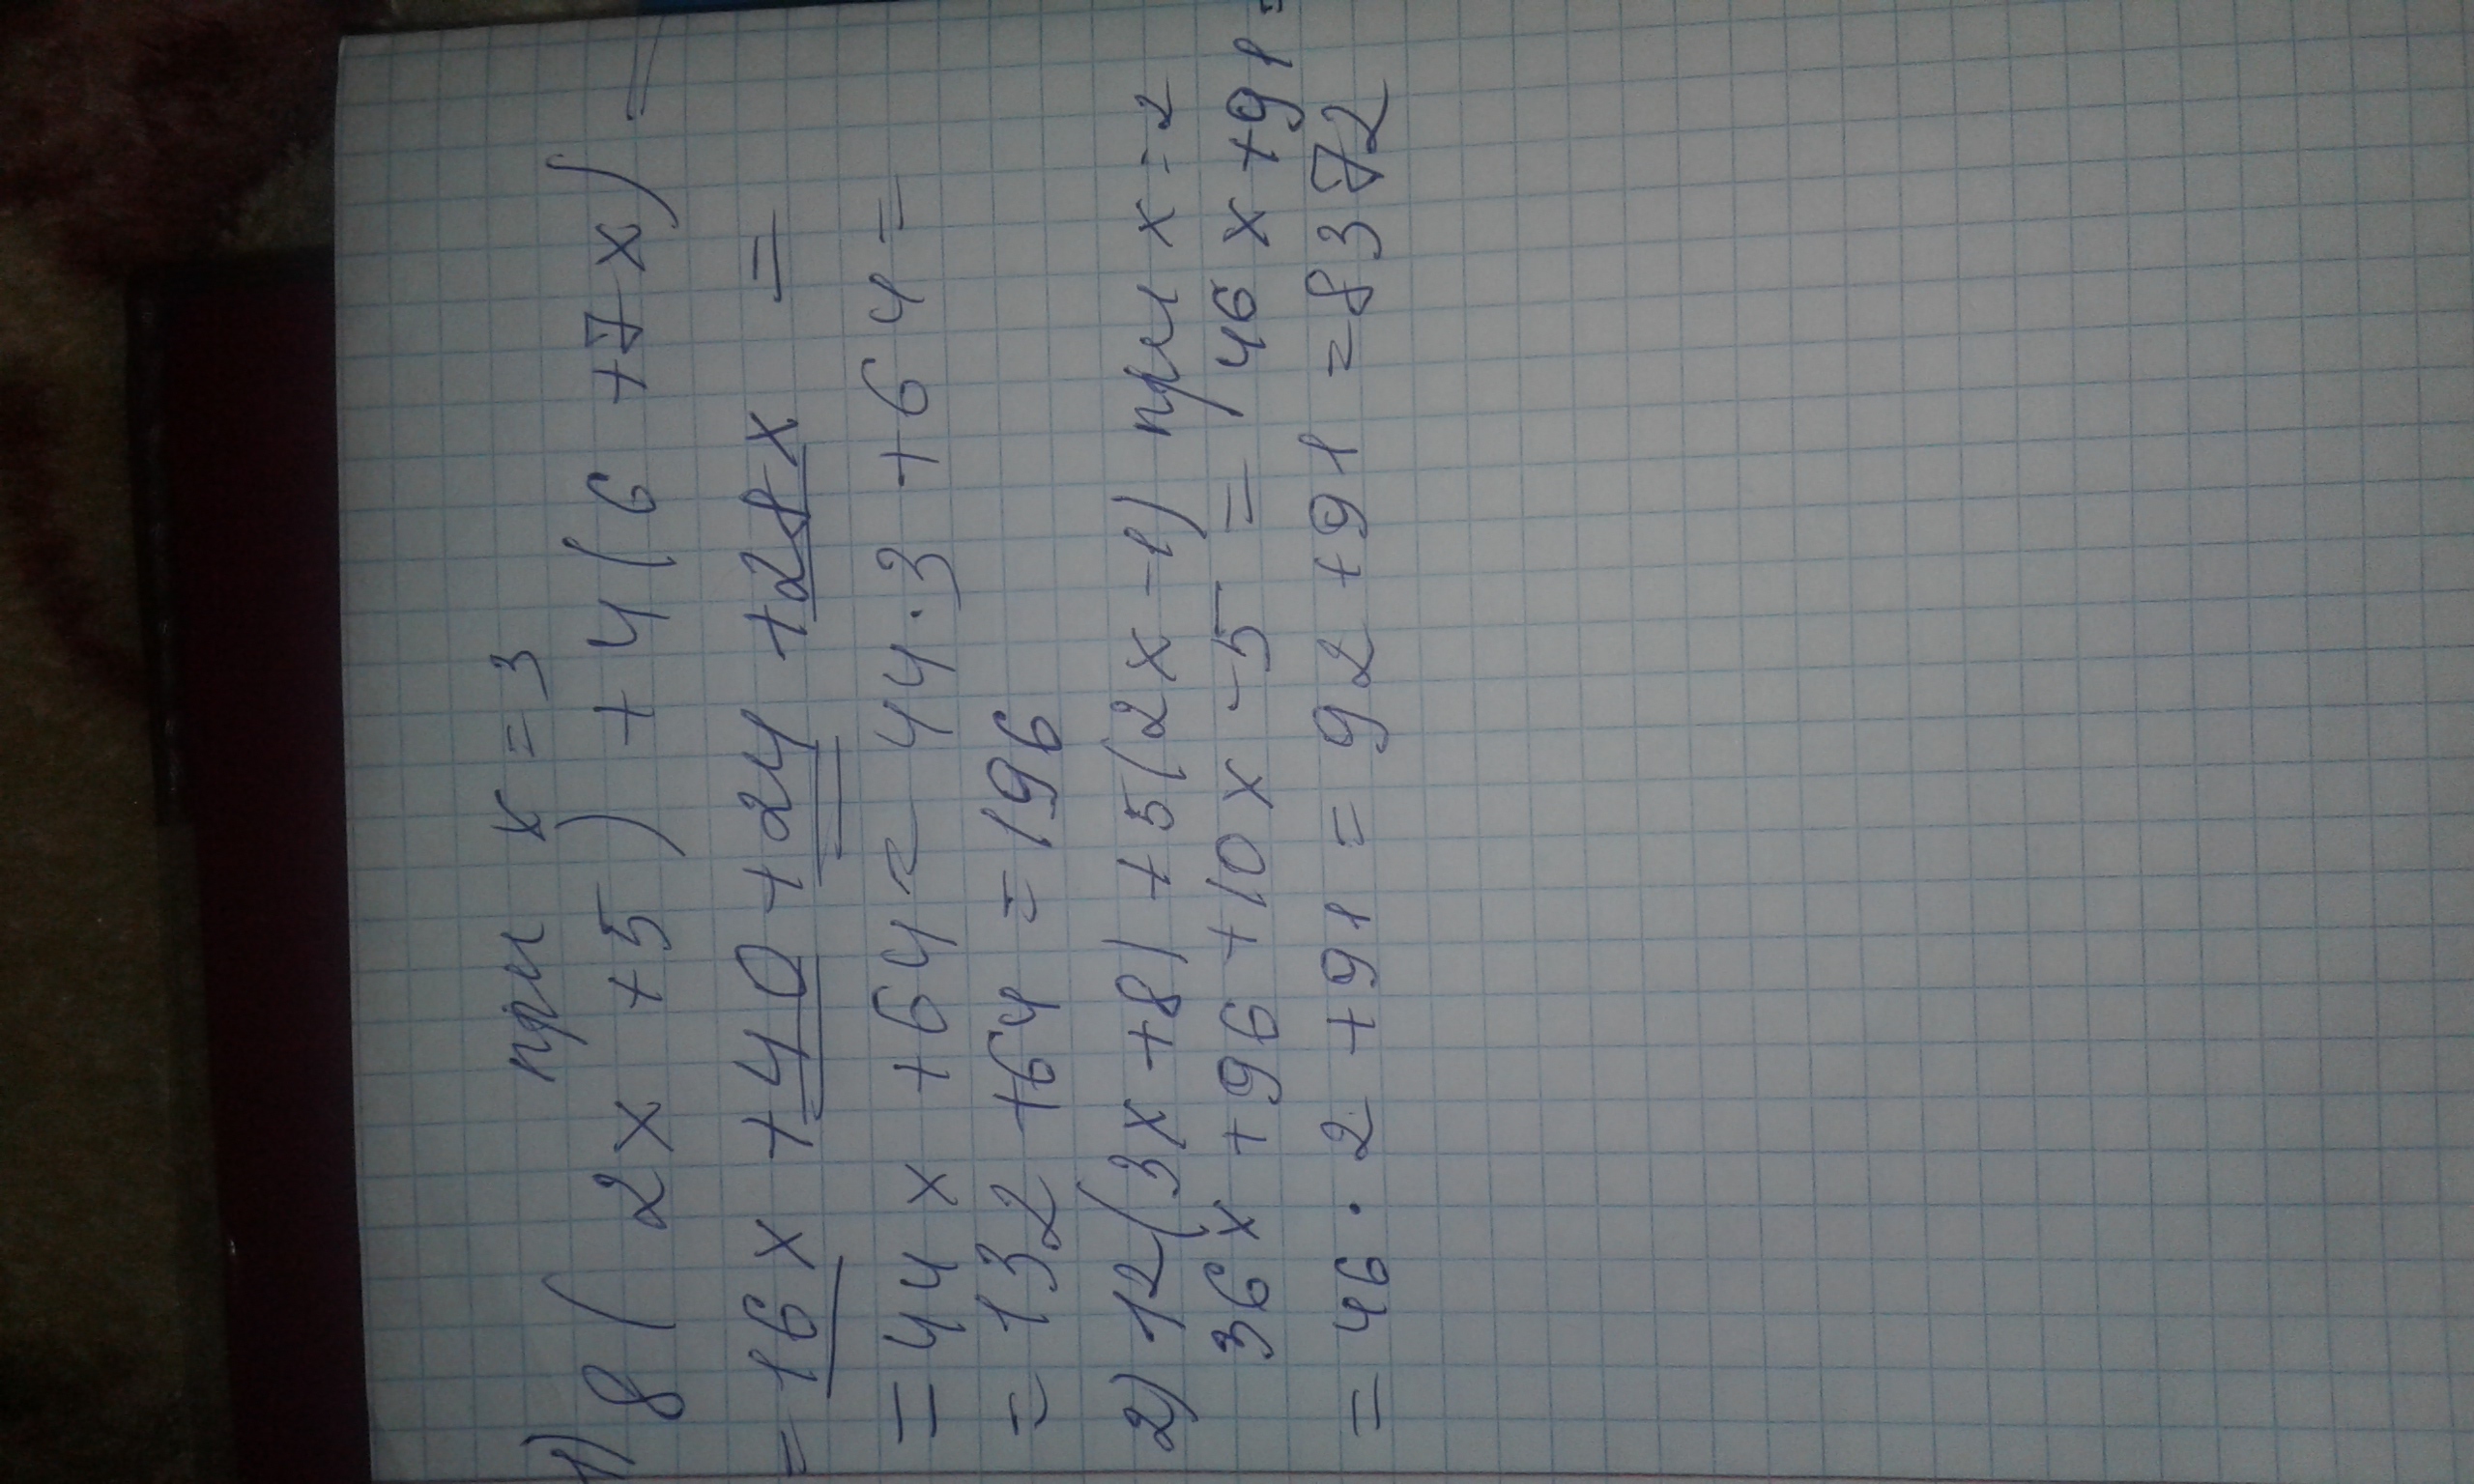 при x = 3
1) 8 ( 2x + 5 ) + 4 ( 6 + 7x ) =
= 16x + 40 + 24 + 28x =
= 44x + 64 = 44 · 3 + 64 =
= 132 + 64 = 196
2) 12 ( 3x + 8 ) + 5 ( 2x - 1 ) при x = 2
36x + 96 + 10x - 5 = 46x + 91 =
= 46 · 2 + 91 = 92 + 91 = 8372